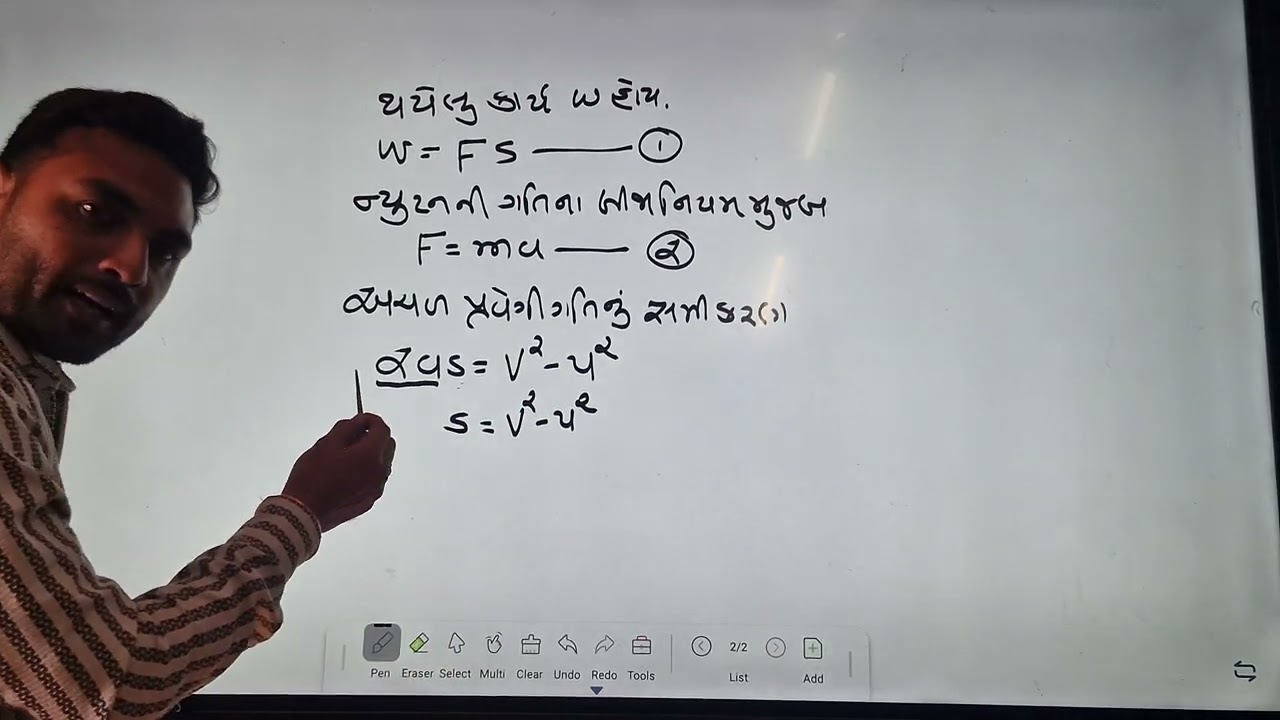 થયેલુ કાર્ય W હોય.
W = F S —— ૧
ન્યુટનની ગતિના બીજા નિયમ મુજબ
F = ma —— ૨
અચળ પ્રવેગી ગતિનું સમીકરણ
૨as = v² - u²
s = v² - u²
Pen Eraser Select Multi Clear Undo Redo Tools 2/2 List Add